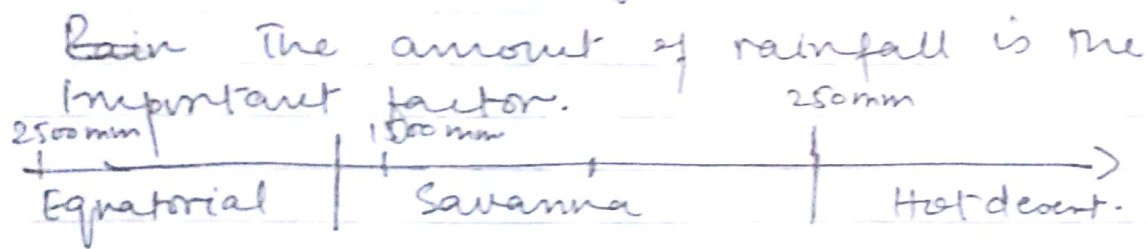 The amount of rainfall is the
Important factor.
2500mm 1500mm 250mm
Equatorial Savanna Hot desert.